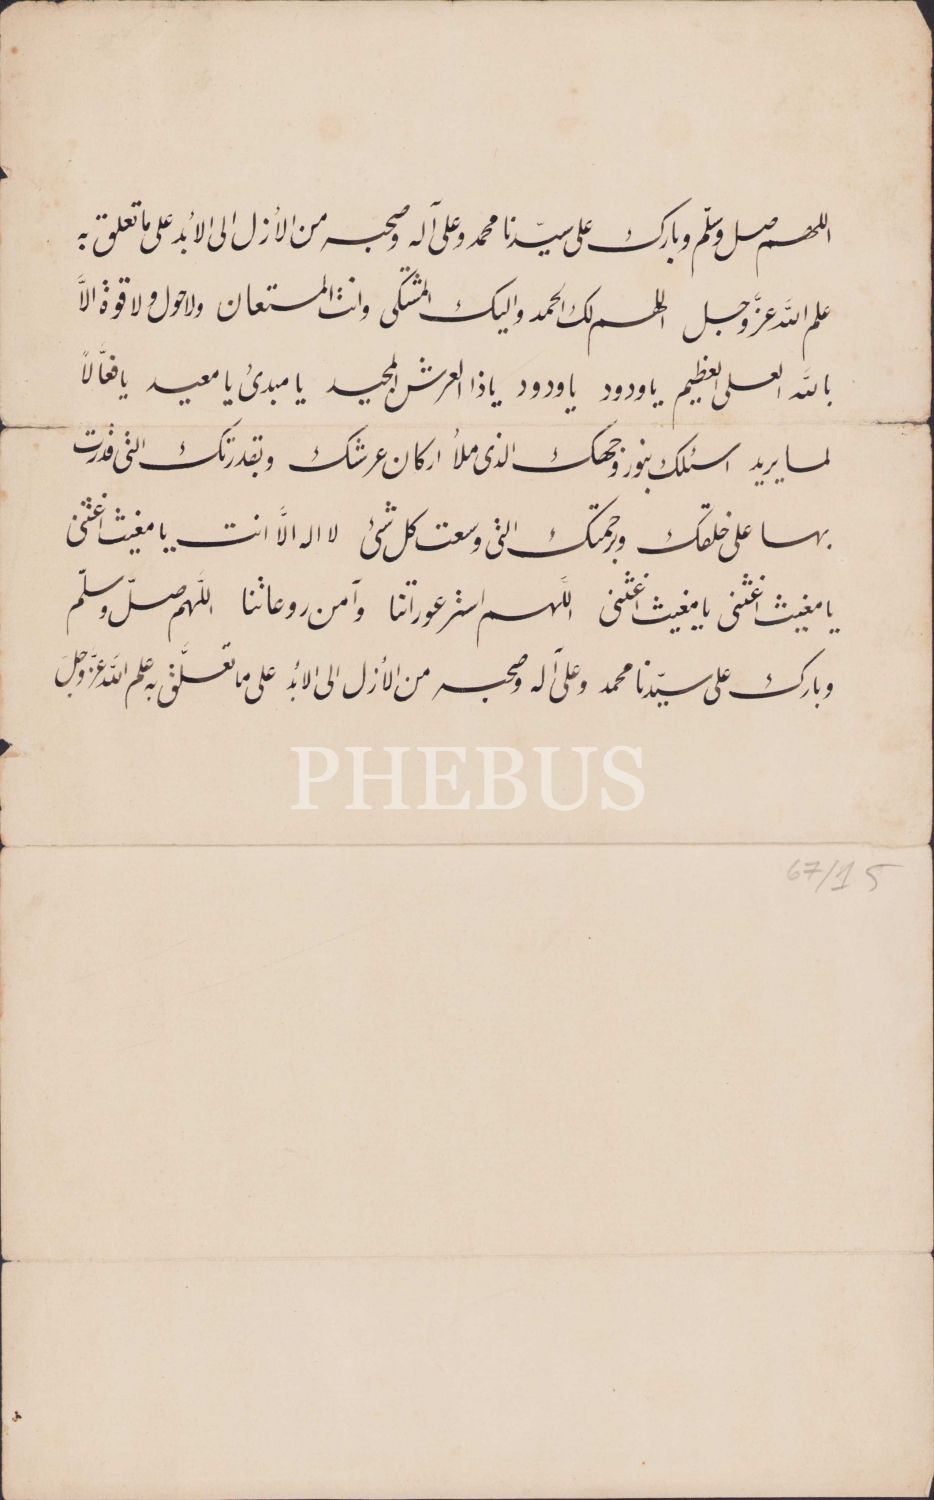 اللهم صل وسلّم وبارك على سيّدنا محمد وعلى آله وصحبه من الأزل الى الأبد على ما تعلق به
علم اللّه عزّ وجل اللهم لك الحمد واليك المشتكى وانت المستعان ولا حول ولا قوة الاَّ
باللّه العلى العظيم يا ودود يا ودود يا ذا العرش المجيد يا مبدئ يا معيد يا فعَّالاً
لما يريد اسئلك بنور وجهك الذى ملأ اركان عرشك وبقدرتك التى قدرت
بها على خلقك وبرحمتك التى وسعت كل شئ لا اله الاَّ انت يا مغيث اغثنى
يا مغيث اغثنى يا مغيث اغثنى اللّهم استر عوراتنا وآمن روعاتنا اللّهم صلّ وسلّم
وبارك على سيّدنا محمد وعلى آله وصحبه من الأزل الى الأبد على ما تعلَّق به علم اللّه عزَّ وجلّ
PHEBUS
67/15